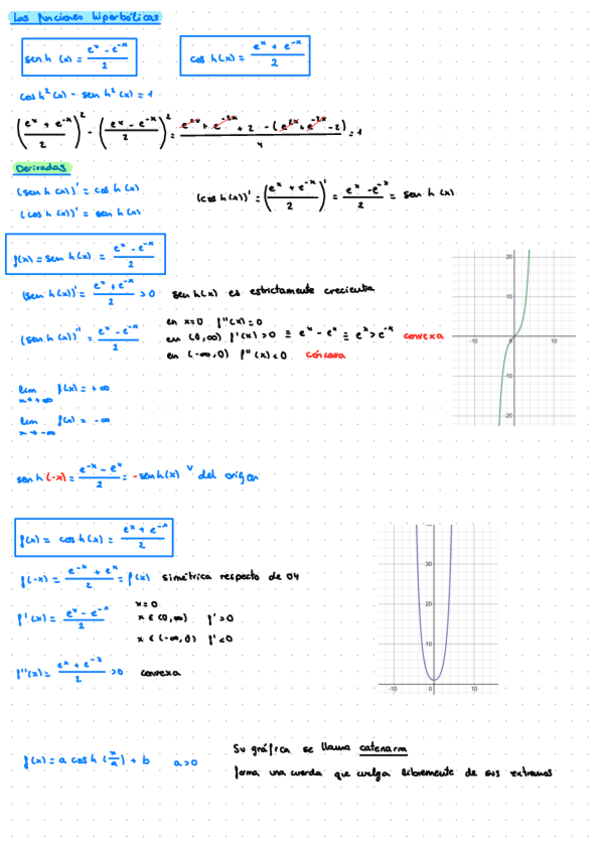 Las funciones hiperbólicas
senh(x) = (e^x - e^-x)/2    cosh(x) = (e^x + e^-x)/2
cosh²(x) - senh²(x) = 1
((e^x + e^-x)/2)² - ((e^x - e^-x)/2)² = (e^2x + e^-2x + 2 - (e^2x + e^-2x - 2))/4 = 1
Derivadas
(senh(x))' = cosh(x)    (cosh(x))' = ((e^x + e^-x)/2)' = (e^x - e^-x)/2 = senh(x)
(cosh(x))' = senh(x)
f(x) = senh(x) = (e^x - e^-x)/2
(senh(x))' = (e^x + e^-x)/2 > 0    senh(x) es estrictamente creciente
(senh(x))'' = (e^x - e^-x)/2
en x=0 f''(x) = 0
en (0,∞) f''(x) > 0 ≡ e^x - e^-x ≡ e^x > e^-x convexa
en (-∞,0) f''(x) < 0 cóncava
20
10
-10
0
10
-10
-20
lim x→+∞ f(x) = +∞
lim x→-∞ f(x) = -∞
senh(-x) = (e^-x - e^x)/2 = -senh(x) del origen
f(x) = cosh(x) = (e^x + e^-x)/2
f(-x) = (e^-x + e^x)/2 = f(x) simétrica respecto de OY
f'(x) = (e^x - e^-x)/2
x=0
x ∈ (0,∞) f' > 0
x ∈ (-∞,0) f' < 0
f''(x) = (e^x + e^-x)/2 > 0 convexa
40
30
20
10
-10
0
10
f(x) = a cosh(x/a) + b    a>0
Su gráfica se llama catenaria
forma una cuerda que cuelga libremente de sus extremos